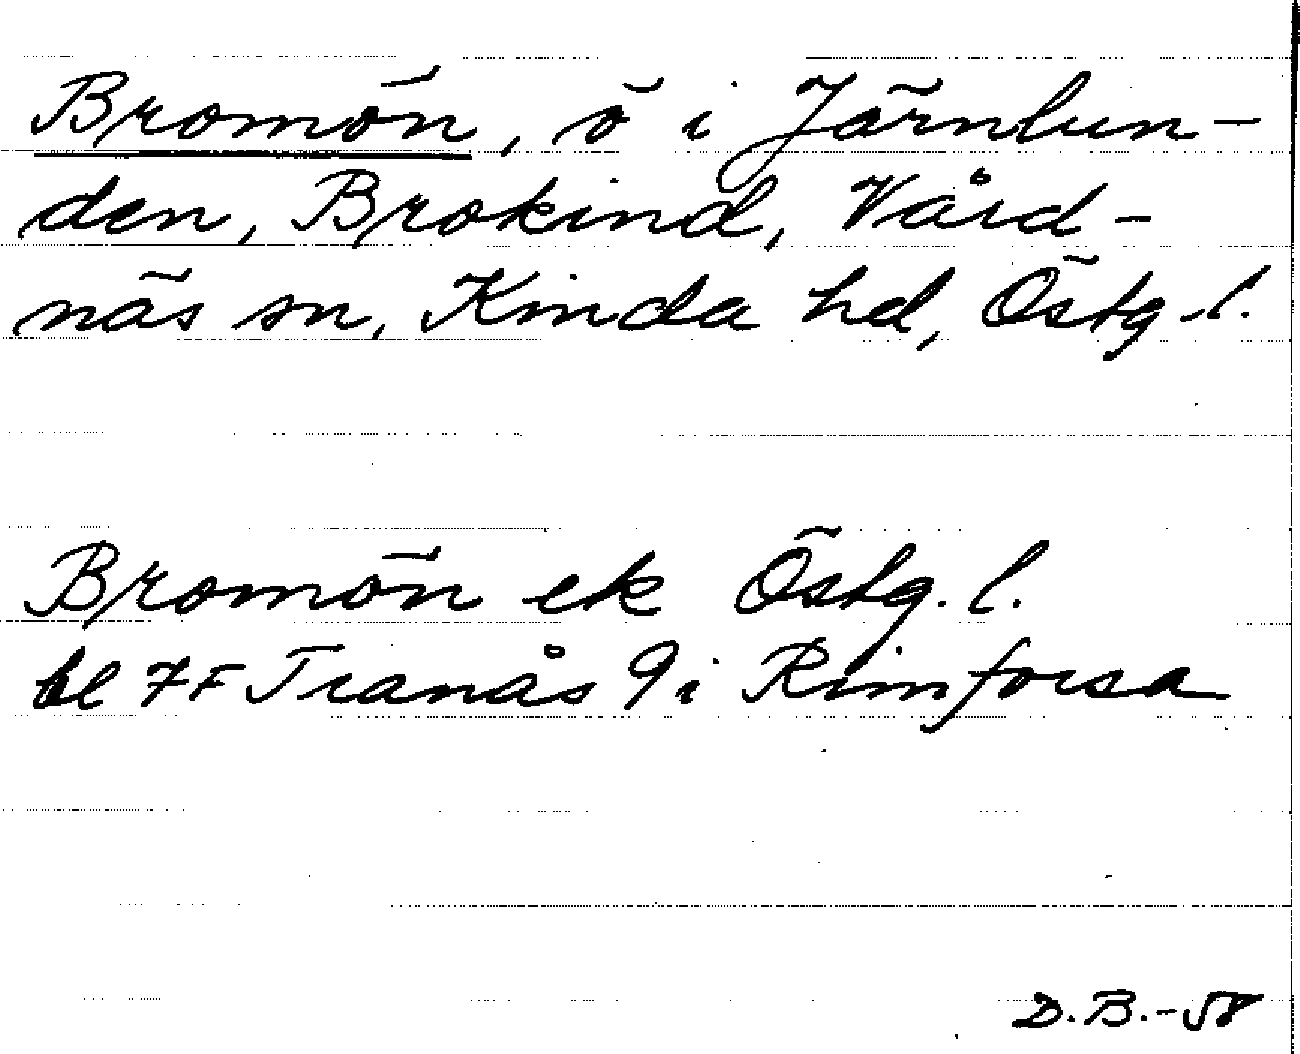 Bromön, ö i Järnlun-
den, Brokind, Vård-
näs sn, Kinda hd, Östg. l.
Bromön ek Östg. l.
bl 7F Tranås 9i Rimforsa
D.B.-58